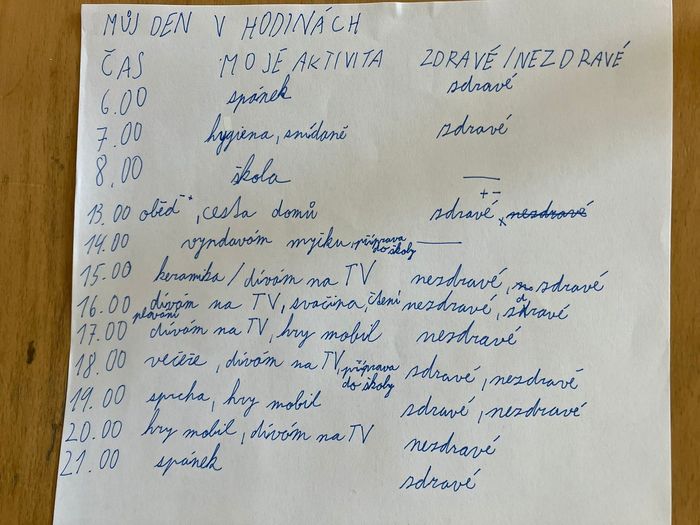 MŮJ DEN V HODINÁCH
ČAS MOJE AKTIVITA ZDRAVÉ/NEZDRAVÉ
6.00 spánek zdravé
7.00 hygiena, snídaně zdravé
8.00 škola —
13.00 oběd, cesta domů zdravé +- nezdravé
14.00 vyndavám myčku, příprava do školy —
15.00 keramika / dívám na TV nezdravé, zdravé
16.00 plavání dívám na TV, svačina, čtení nezdravé, zdravé
17.00 dívám na TV, hry mobil nezdravé
18.00 večeře, dívám na TV, příprava do školy zdravé, nezdravé
19.00 sprcha, hry mobil zdravé, nezdravé
20.00 hry mobil, dívám na TV nezdravé
21.00 spánek zdravé